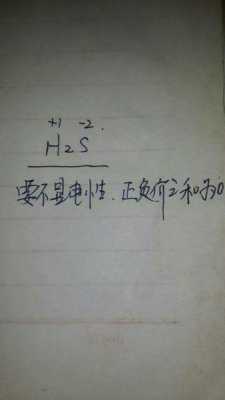 +1 -2.
H2S
要不显电性.正负价之和为0